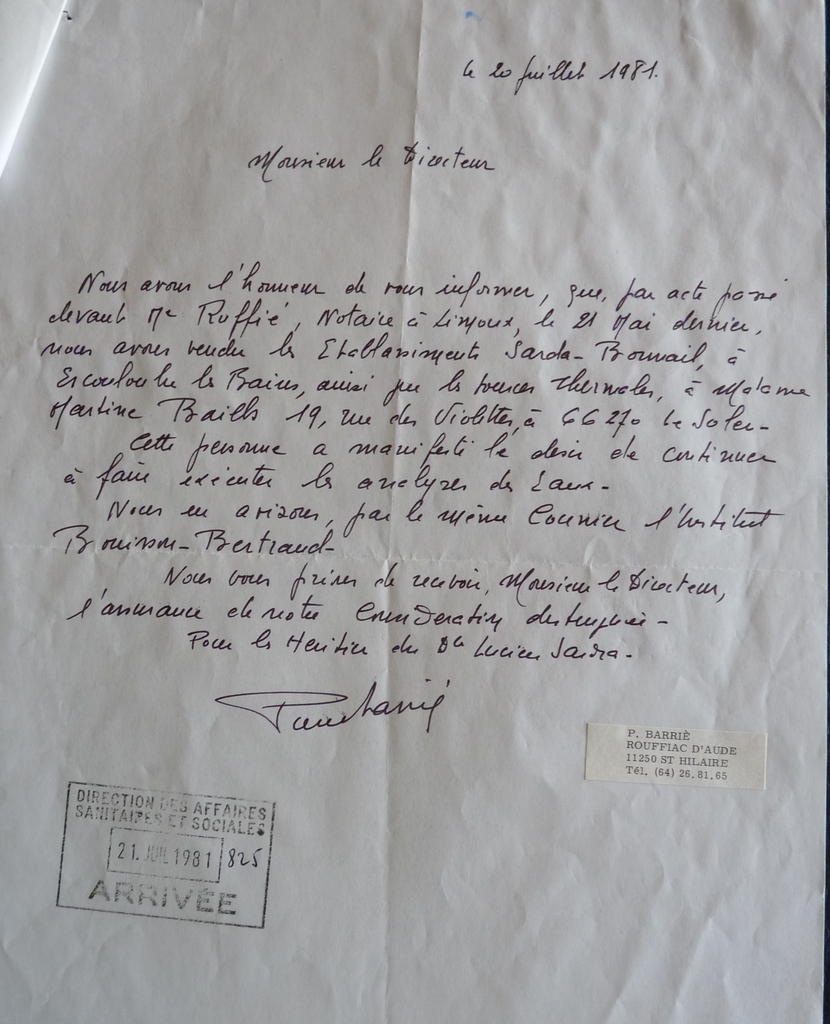 le 20 juillet 1981.
Monsieur le Directeur
Nous avons l'honneur de vous informer, que, par acte passé
devant Me Ruffié, Notaire à Limoux, le 21 Mai dernier,
nous avons vendu les Etablissements Sarda-Bonnail, à
Escouloubre les Bains, ainsi que les sources thermales, à Madame
Martine Bails 19, rue des Violettes, à 66270 Le Soler-
Cette personne a manifesté le désir de continuer
à faire exécuter les analyses des Eaux-
Nous en avisons, par le même Courrier l'Institut
Bouisson-Bertrand-
Nous vous prions de recevoir, Monsieur le Directeur,
l'assurance de notre Considération distinguée-
Pour les Héritiers du Dr Lucien Sarda-
P. BARRIÈ
ROUFFIAC D'AUDE
11250 ST HILAIRE
Tél. (64) 26.81.65
DIRECTION DES AFFAIRES
SANITAIRES ET SOCIALES
21. JUIL 1981 825
ARRIVÉE